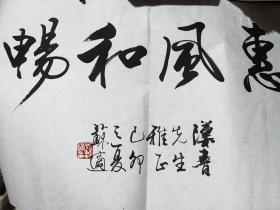 惠風和暢
漢青
先生
雅正
己卯
之夏
蘇適